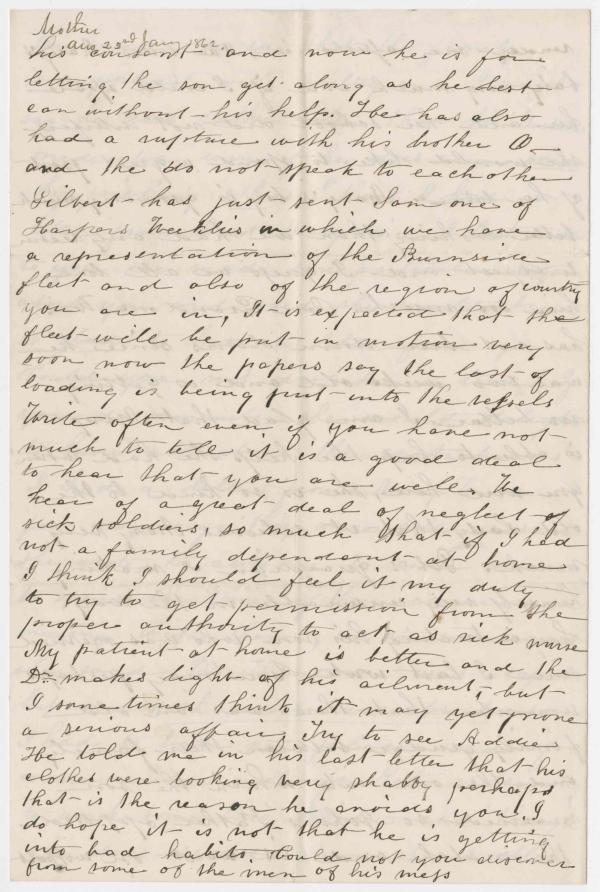 Mother
ans 23rd Jany 1862.
his consent and now he is for
letting the son get along as he best
can without his help. He has also
had a rupture with his brother O
and the do not speak to each other
Gilbert has just sent Sam one of
Harpers Weeklies in which we have
a representation of the Burnside
fleet and also of the region of country
you are in, It is expected that the
fleet will be put in motion very
soon now the papers say the last of
loading is being put into the vessels
Write often even if you have not
much to tell it is a good deal
to hear that you are well. We
hear of a great deal of neglect of
sick soldiers, so much that if I had
not a family dependent at home
I think I should feel it my duty
to try to get permission from the
proper authority to act as sick nurse
My patient at home is better and the
Dr. makes light of his ailment, but
I sometimes think it may yet prove
a serious affair, Try to see Addie
He told me in his last letter that his
clothes were looking very shabby perhaps
that is the reason he avoids you. I
do hope it is not that he is getting
into bad habits. Could not you discover
from some of the men of his mess